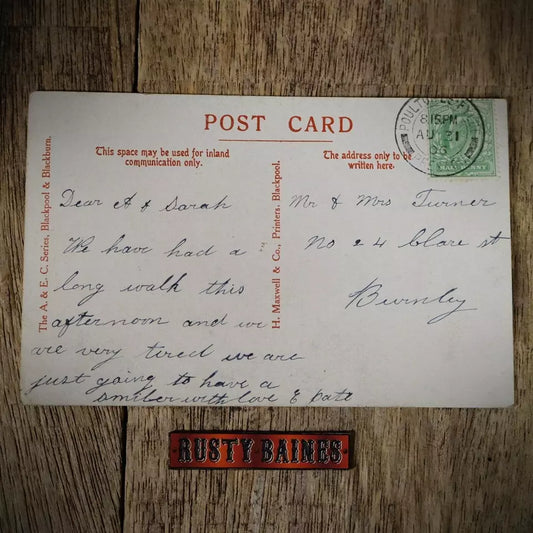 POST CARD
This space may be used for inland
communication only.
The address only to be
written here.
The A. & E. C. Series, Blackpool & Blackburn.
H. Maxwell & Co., Printers, Blackpool.
Dear A & Sarah
We have had a
long walk this
afternoon and we
are very tired we are
just going to have a
with love E
Mr & Mrs Turner
No 24 Clare st
Burnley
8.15PM
AU 21
06
RUSTY BAINES